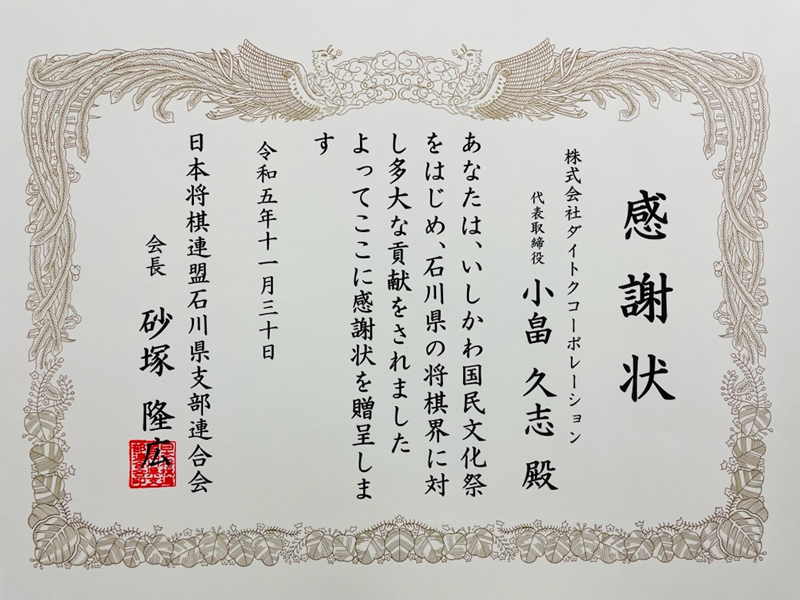 感謝状
株式会社ダイトクコーポレーション
代表取締役 小畠 久志 殿
あなたは、いしかわ国民文化祭
をはじめ、石川県の将棋界に対
し多大な貢献をされました
よってここに感謝状を贈呈しま
す
令和五年十一月三十日
日本将棋連盟石川県支部連合会
会長 砂塚 隆広